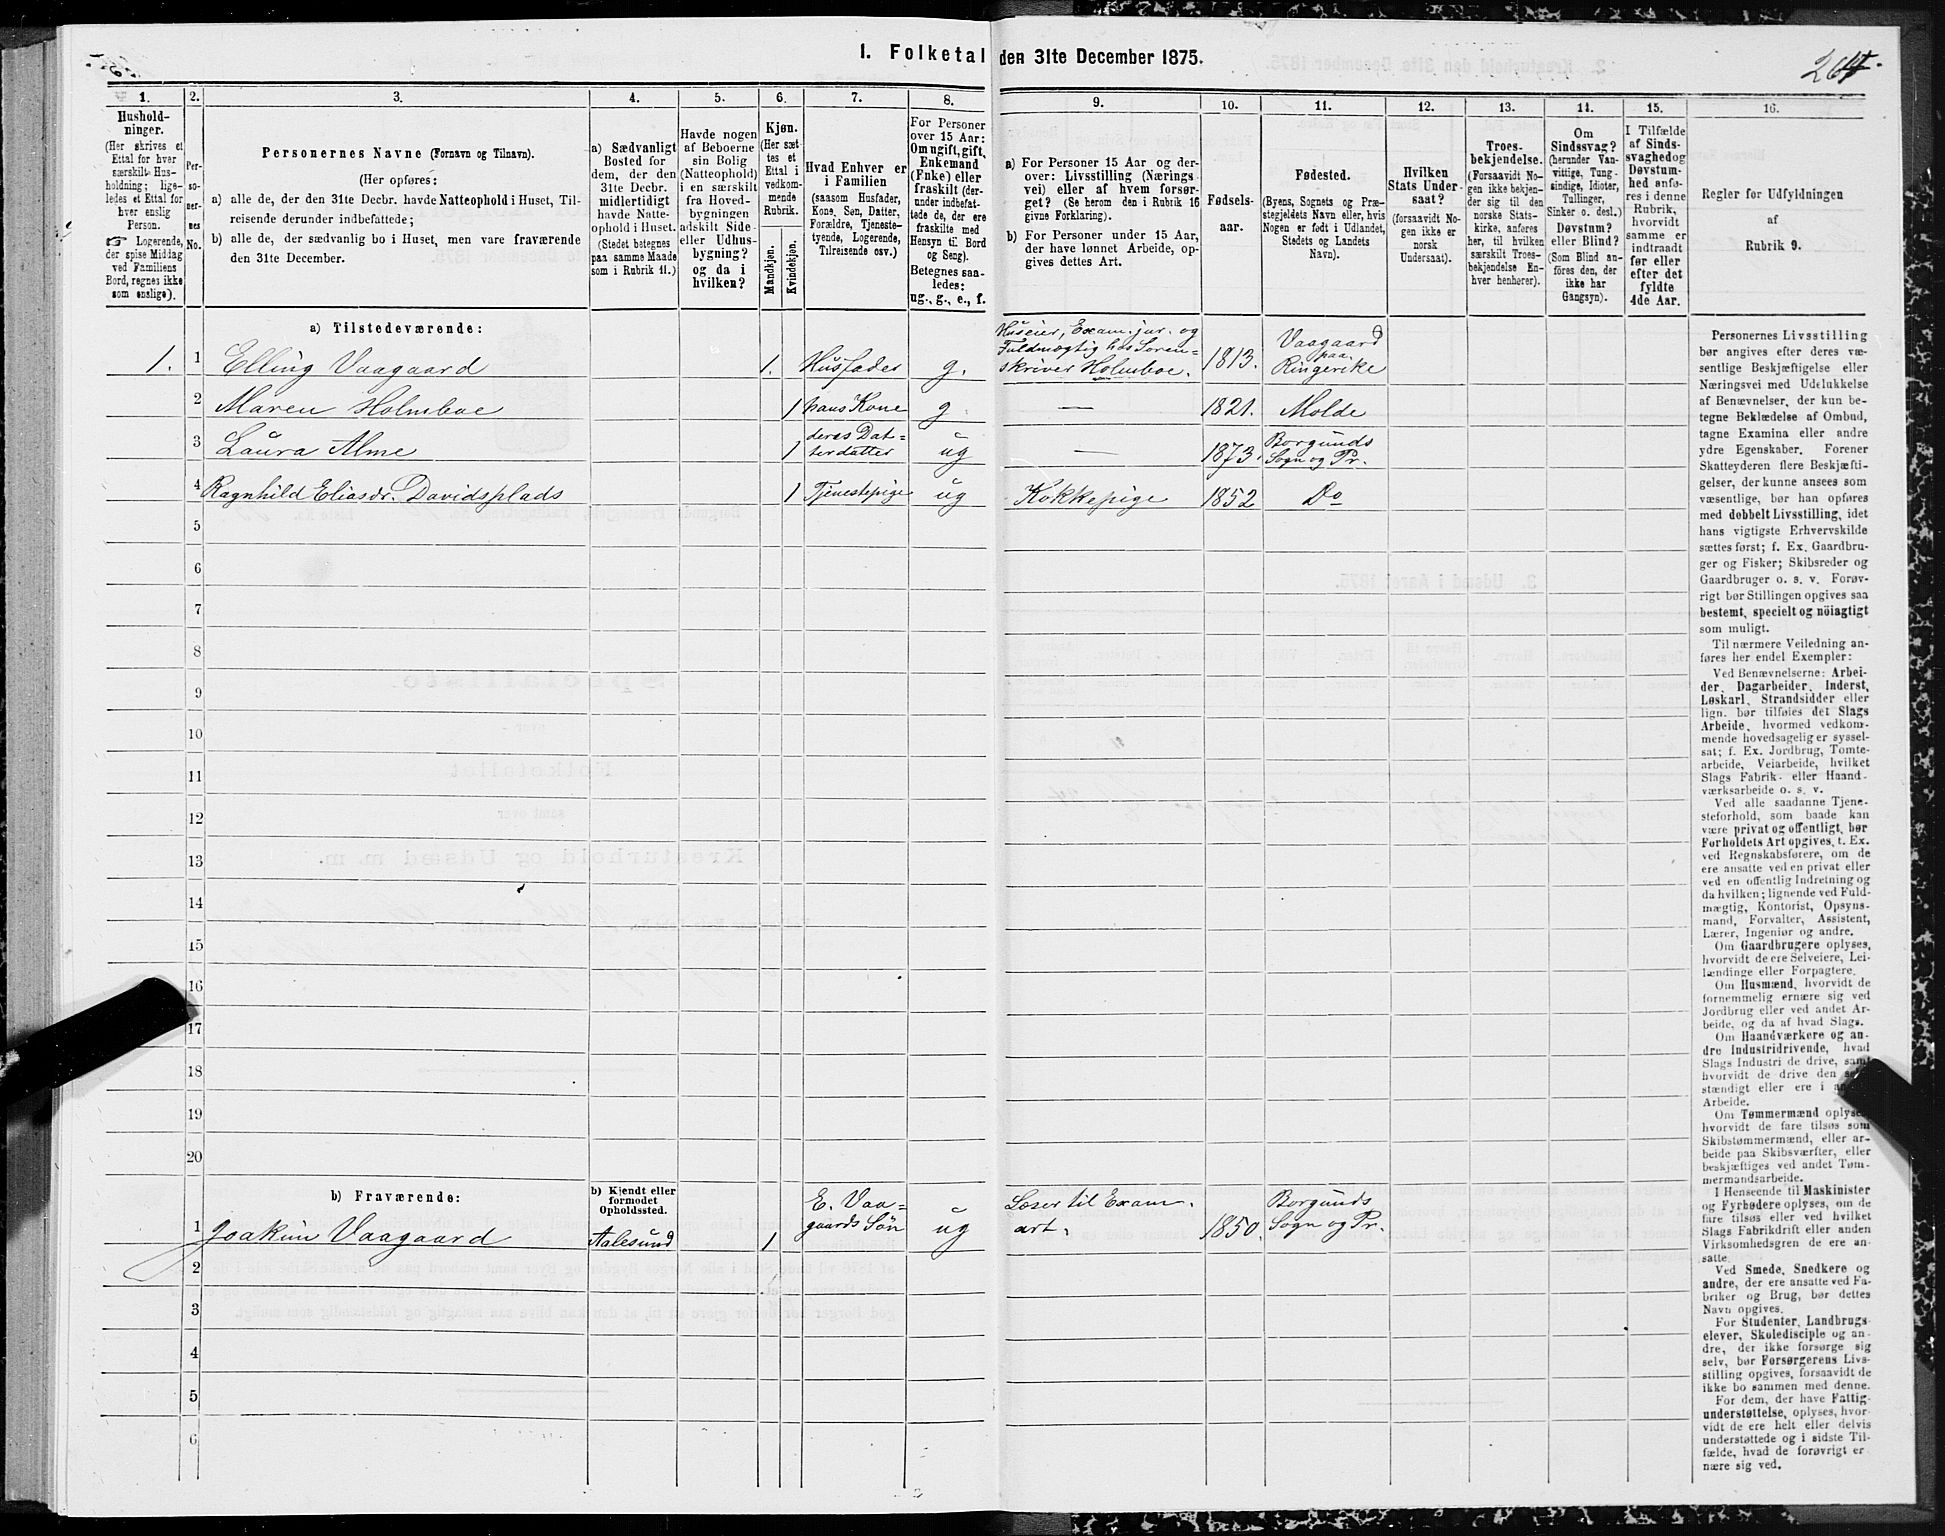 1. Folketal den 31te December 1875.
264.
1.
Hushold-
ninger.
(Her skrives et
Ettal for hver
særskilt Hus-
holdning; lige-
ledes et Ettal for
hver enslig
Person.
☞ Logerende,
der spise Middag
ved Familiens
Bord, regnes ikke
som enslige).
2.
Per-
so-
ner-
nes
No.
3.
Personernes Navne (Fornavn og Tilnavn).
(Her opføres:
a) alle de, der den 31te Decbr. havde Natteophold i Huset, Til-
reisende derunder indbefattede;
b) alle de, der sædvanlig bo i Huset, men vare fraværende
den 31te December.
4.
a) Sædvanligt
Bosted for
dem, der den
31te Decbr.
midlertidigt
havde Natte-
ophold i Huset.
(Stedet betegnes
paa samme Maade
som i Rubrik 11.)
5.
Havde nogen
af Beboerne
sin Bolig
(Natteophold)
i en særskilt
fra Hoved-
bygningen
adskilt Side-
eller Udhus-
bygning?
og da i
hvilken?
6.
Kjøn.
(Her sæt-
tes et
Ettal i
vedkom-
mende
Rubrik.
Mandkjøn.
Kvindekjøn.
7.
Hvad Enhver er
i Familien
(saasom Husfader,
Kone, Søn, Datter,
Forældre, Tjeneste-
tyende, Logerende,
Tilreisende osv.)
8.
For Personer
over 15 Aar:
Om ugift, gift,
Enkemand
(Enke) eller
fraskilt (der-
under indbefat-
tede de, der ere
fraskilte med
Hensyn til Bord
og Seng).
Betegnes saa-
ledes:
ug., g., e., f.
9.
a) For Personer 15 Aar og der-
over: Livsstilling (Nærings
vei) eller af hvem forsør-
get? (Se herom den i Rubrik 16
givne Forklaring).
b) For Personer under 15 Aar,
der have lønnet Arbeide, op-
gives dettes Art.
10.
Fødsels-
aar.
11.
Fødested.
(Byens, Sognets og Præ-
stegjeldets Navn eller, hvis
Nogen er født i Udlandet,
Stedets og Landets
Navn).
12.
Hvilken
Stats Under-
saat?
(forsaavidt No-
gen ikke er
norsk
Undersaat).
13.
Troes-
bekjendelse.
(Forsaavidt No-
gen ikke bekjen-
der sig til den
norske Stats-
kirke, anføres
her, til hvilken
særskilt Troes-
bekjendelse En-
hver henhører).
14.
Om
Sindssvag?
(herunder Van-
vittige, Tung-
sindige, Idioter,
Tullinger,
Sinker o. desl.)
Døvstum?
eller Blind?
(Som Blind an-
føres den, der
ikke har
Gangsyn).
15.
I Tilfælde
af Sinds-
svaghed og
Døvstum-
hed anfø-
res i denne
Rubrik,
hvorvidt
samme er
indtraadt
før eller
efter det
fyldte
4de Aar.
16.
Regler for Udfyldningen
af
Rubrik 9.
a) Tilstedeværende:
1. 1 Elling Vaagaard 1. Husfader g. Huseier, Exam. jur. og Fuldmægtig hos Soren= skriver Holmboe. 1813. Vaagaard paa Ringerike
2 Maren Holmboe 1 hans Kone g. — 1821. Molde
3 Laura Alme 1 deres Dat= terdatter ug — 1873. Borgunds Sogn og Pr.
4 Ragnhild Eliasdr. Davidsplads 1 Tjenestepige ug Kokkepige 1852 Do
5
6
7
8
9
10
11
12
13
14
15
16
17
18
19
20
b) Fraværende:
b) Kjendt eller
formodet
Opholdssted.
1 Joakim Vaagaard Aalesund 1 E. Vaa= gaards Søn ug Læser til Exam. art. 1850. Borgunds Sogn og Pr.
2
3
4
5
6
Personernes Livsstilling
bør angives efter deres væ-
sentlige Beskjæftigelse eller
Næringsvei med Udelukkelse
af Benævnelser, der kun be-
tegne Beklædelse af Ombud,
tagne Examina eller andre
ydre Egenskaber. Forener
Skatteyderen flere Beskjæfti-
gelser, der kunne ansees som
væsentlige, bør han opføres
med dobbelt Livsstilling, idet
hans vigtigste Erhvervskilde
sættes først; f. Ex. Gaardbru-
ger og Fisker; Skibsreder og
Gaardbruger o. s. v. Forøv-
rigt bør Stillingen opgives saa
bestemt, specielt og nøiagtigt
som muligt.
Til nærmere Veiledning an-
føres her endel Exempler:
Ved Benævnelserne: Arbei-
der, Dagarbeider, Inderst,
Løskarl, Strandsidder eller
lign. bør tilføies det Slags
Arbeide, hvormed vedkom-
mende hovedsagelig er syssel-
sat; f. Ex. Jordbrug, Tomte-
arbeide, Veiarbeide, hvilket
Slags Fabrik- eller Haand-
værksarbeide o. s. v.
Ved alle saadanne Tjene-
steforhold, som baade kan
være privat og offentligt, bør
Forholdets Art opgives, t. Ex.
ved Regnskabsførere, om de
ere ansatte ved en privat eller
ved en offentlig Indretning og
da hvilken; lignende ved Fuld-
mægtig, Kontorist, Opsyns-
mand, Forvalter, Assistent,
Lærer, Ingeniør og andre.
Om Gaardbrugere oplyses,
hvorvidt de ere Selveiere, Lei-
lændinge eller Forpagtere.
Om Husmænd, hvorvidt de
fornemmelig ernære sig ved
Jordbrug eller ved andet Ar-
beide, og da af hvad Slags.
Om Haandværkere og an-
dre Industridrivende, hvad
Slags Industri de drive, samt
hvorvidt de drive den
stændigt eller ere i
Arbeide.
Om Tømmermænd oplyses
hvorvidt de fare tilsøs som
Skibstømmermænd, eller ar-
beide paa Skibsværfter, eller
beskjæftiges ved andet Tøm-
mermandsarbeide.
I Henseende til Maskinister
og Fyrbødere oplyses, om de
fare tilsøs eller ved hvilket
Slags Fabrikdrift eller anden
Virksomhedsgren de ere an-
satte.
Ved Smede, Snedkere og
andre, der ere ansatte ved Fa-
briker og Brug, bør dettes
Navn opgives.
For Studenter, Landbrugs-
elever, Skoledisciple og an-
dre, der ikke forsørge sig
selv, bør Forsørgerens Livs-
stilling opgives, forsaavidt de
ikke bo sammen med denne.
For dem, der have Fattig-
understøttelse, oplyses, hvor-
vidt de ere helt eller delvis
understøttede og i sidste Til-
fælde, hvad de forøvrigt er
nære sig ved.